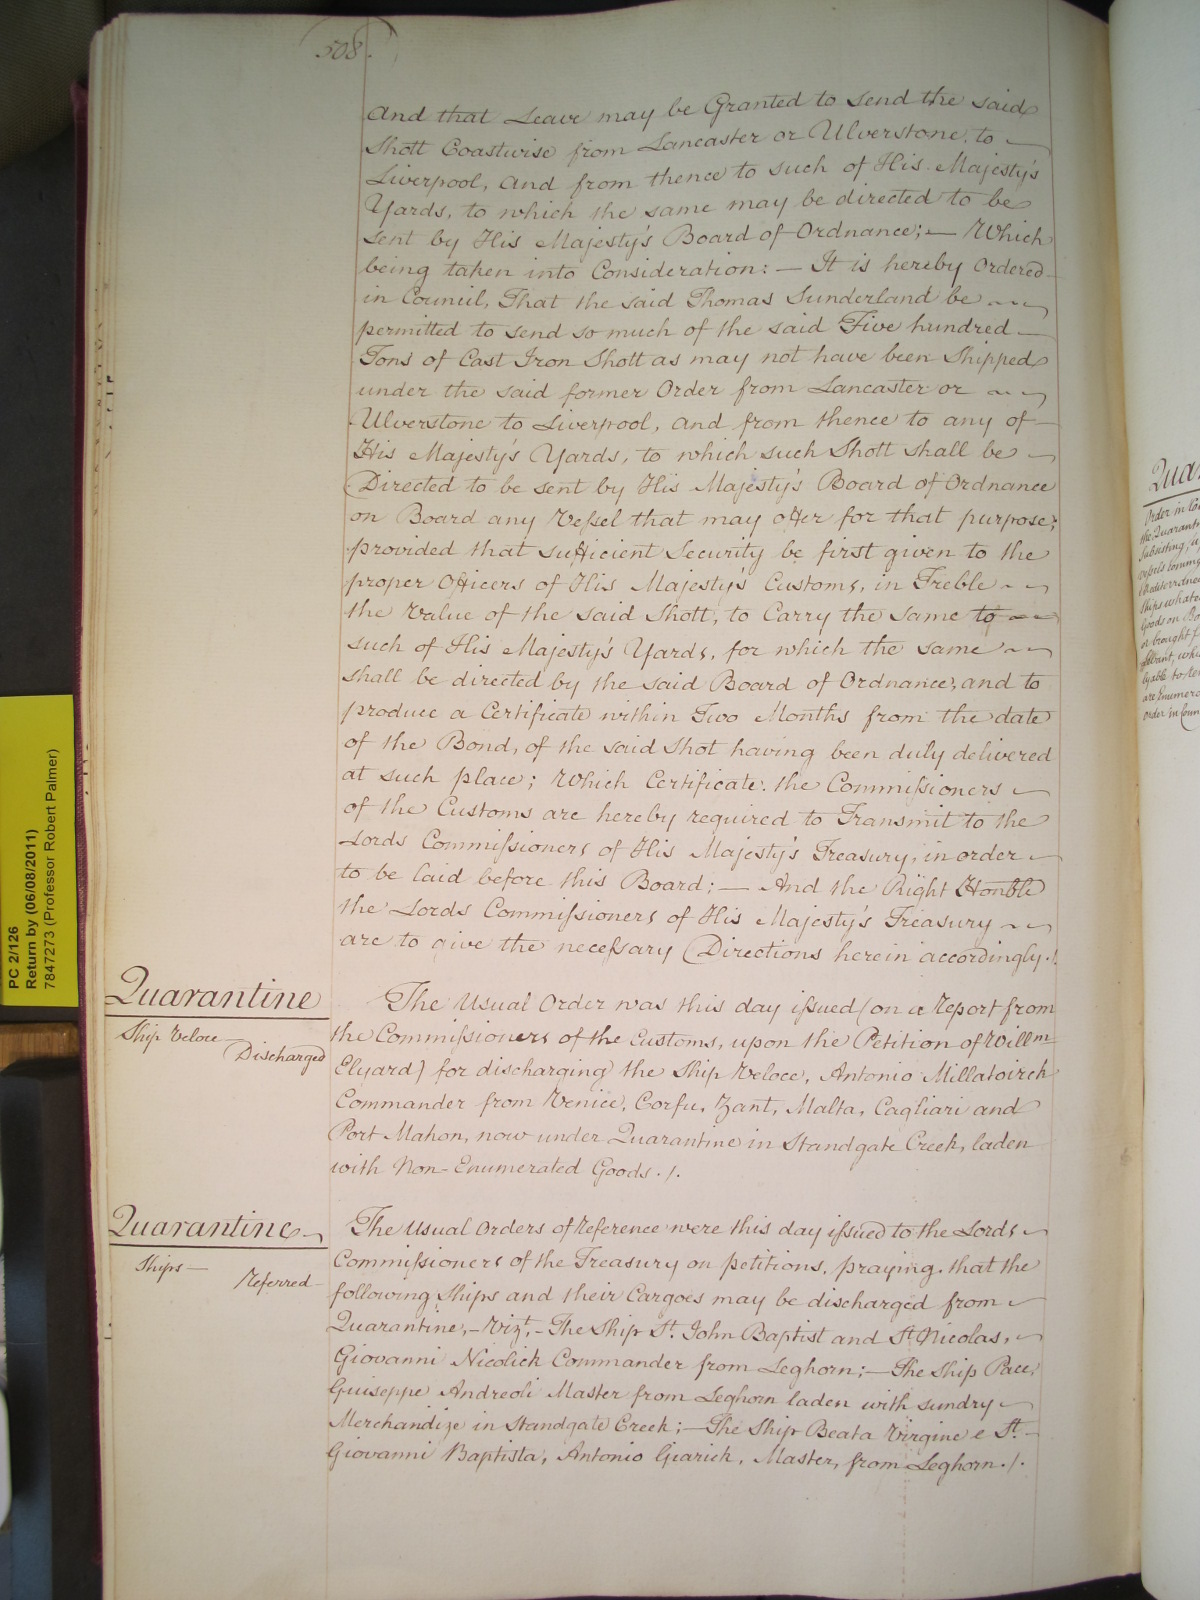 508.
And that Leave may be Granted to send the said
Shott Coastwise from Lancaster or Ulverstone, to
Liverpool, and from thence to such of His Majesty's
Yards, to which the same may be directed to be
sent by His Majesty's Board of Ordnance; — Which
being taken into Consideration: — It is hereby Ordered
in Council, That the said Thomas Sunderland be
permitted to send so much of the said Five hundred
Tons of Cast Iron Shott as may not have been Shipped
under the said former Order from Lancaster or
Ulverstone to Liverpool, and from thence to any of
His Majesty's Yards, to which such Shott shall be
Directed to be sent by His Majesty's Board of Ordnance
on Board any Vessel that may offer for that purpose;
provided that sufficient Security be first given to the
proper Officers of His Majesty's Customs, in Treble
the Value of the said Shott, to Carry the same to
such of His Majesty's Yards, for which the same
shall be directed by the said Board of Ordnance, and to
produce a Certificate within Two Months from the date
of the Bond, of the said Shot having been duly delivered
at such place; Which Certificate the Commissioners
of the Customs are hereby required to Transmit to the
Lords Commissioners of His Majesty's Treasury, in order
to be laid before this Board; — And the Right Honble
the Lords Commissioners of His Majesty's Treasury
are to give the necessary Directions herein accordingly./.
Quarantine
Ship Veloce
Discharged
The Usual Order was this day issued (on a Report from
the Commissioners of the Customs, upon the Petition of Willm
Elyard) for discharging the Ship Veloce, Antonio Millatoirch
Commander from Venice, Corfu, Zant, Malta, Cagliari and
Port Mahon, now under Quarantine in Standgate Creek, laden
with Non-Enumerated Goods./.
Quarantine
Ships —
Referred
The Usual Orders of Reference were this day issued to the Lords
Commissioners of the Treasury on petitions, praying that the
following Ships and their Cargoes may be discharged from
Quarantine, — Vizt. — The Ship St. John Baptist and St Nicolas,
Giovanni Nicolich Commander from Leghorn; — The Ship Pace,
Guiseppe Andreoli Master from Leghorn laden with sundry
Merchandize in Standgate Creek; — The Ship Beata Virgine e St.
Giovanni Baptista, Antonio Giarich, Master, from Leghorn./.
PC 2/126
Return by (06/08/2011)
7847273 (Professor Robert Palmer)
Quar
Order in Co
the Quarant
Subsisting,
Vessels coming
Mediterranea
Ships whate
Goods on Bo
or brought f
Levant, whi
lyable to
are Enumera
Order in Coun